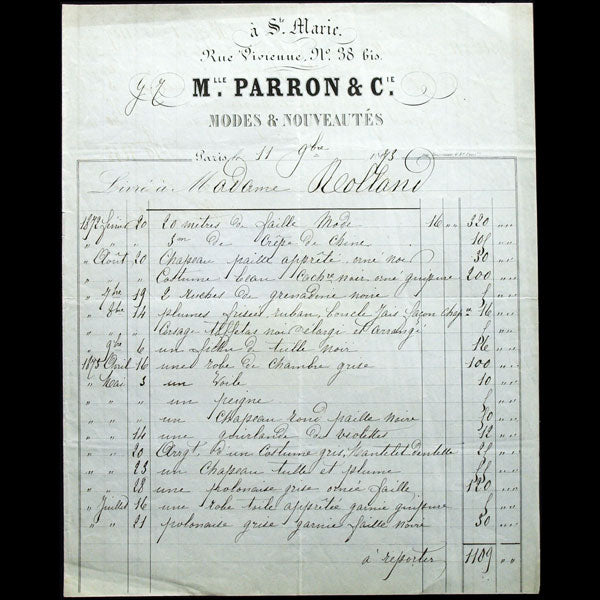 à Ste. Marie.
Rue Vivienne, No. 38 bis.
MLLE. PARRON & CIE.
MODES & NOUVEAUTÉS
Paris, le 11 9bre 1873
Livré à Madame Rolland
1872 février 20 20 mètres de faille Mode 16 " 320 "
" " " 3m de Crêpe de Chine "
" Août 20 Chapeau paille apprêté orné noir 30 "
" " " Costume beau Cachre noir orné guipure 200 "
" 7bre 19 2 Ruches de grenadine noire "
" 8bre 14 plumes frisées, ruban, boucle Jais façon chap. 16 "
" " " Corsage taffetas noir élargi et arrangé "
" 9bre 6 un fichu de tulle noir "
1873 Avril 16 une robe de chambre grise 100 "
" Mai 3 un Voile 10 "
" " " un peigne "
" " " un Chapeau rond paille noire "
" " 14 une guirlande de violettes 12 "
" " 20 Arrgt. d'un Costume gris, Mantelet dentelle "
" " 23 un Chapeau tulle et plume "
" " 28 une polonaise grise ornée faille 120 "
" Juillet 16 une robe toile apprêtée garnie guipure "
" " 21 polonaise grise garnie faille noire "
à reporter 1109 "